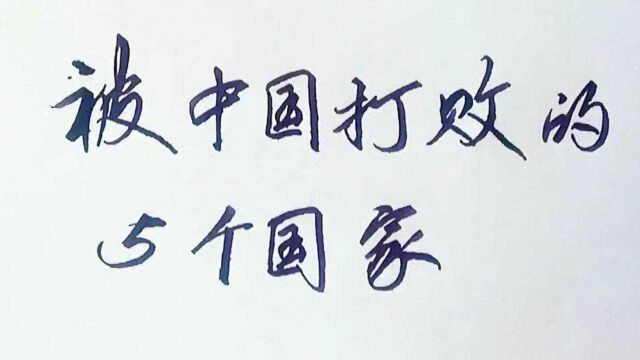 被中国打败的
5个国家